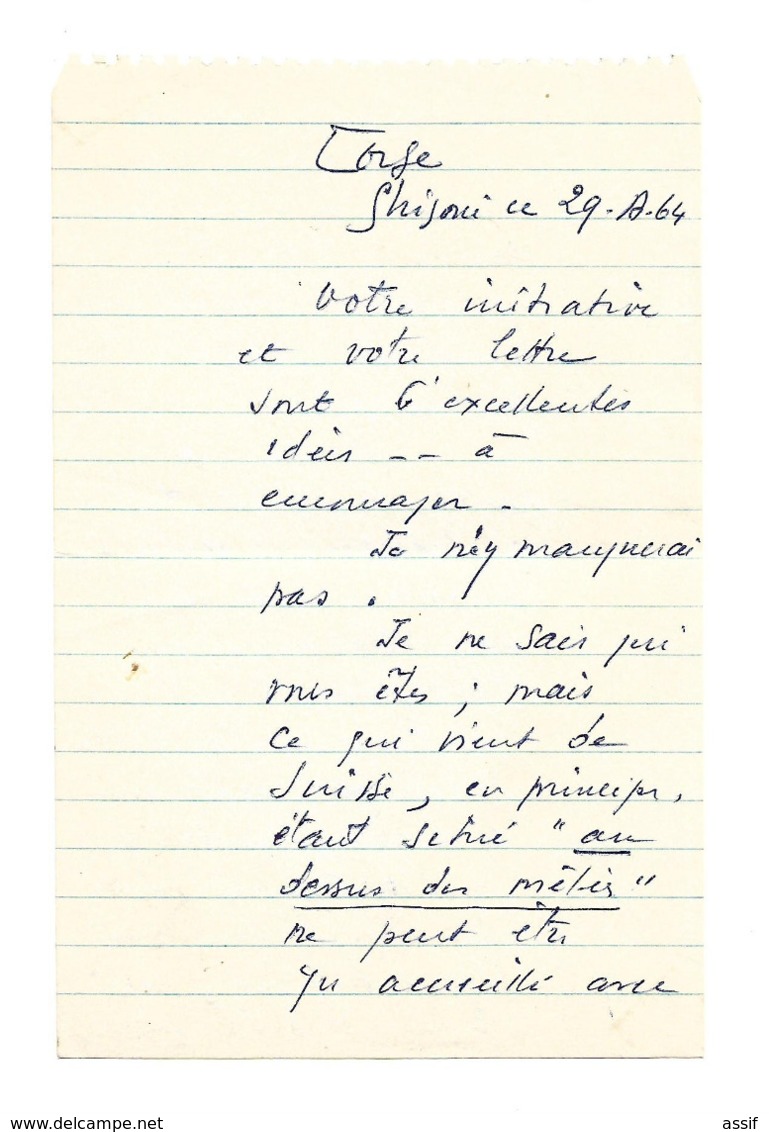 Corse
Ghisoni ce 29-A-64
Votre initiative
et votre lettre
sont d'excellentes
idées -- à
encourager.
Je n'y manquerai
pas.
Je ne sais qui
vous êtes ; mais
ce qui vient de
Suisse, en principe,
étant situé "au
dessus des mêlées"
ne peut être
qu'accueilli avec
www.delcampe.net
assif